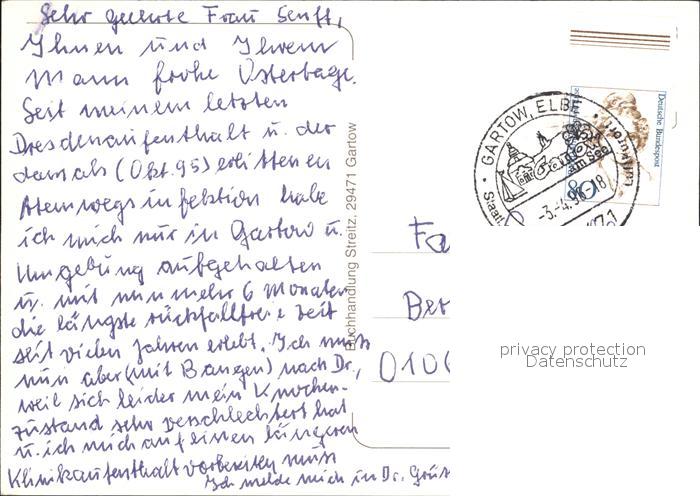 Sehr geehrte Frau Senff,
Ihnen und Ihrem
Mann frohe Ostertage.
Seit meinem letzten
Dresdenaufenthalt u. der
damals (Okt. 95) erlittenen
Atemwegsinfektion habe
ich mich nur in Gartow u.
Umgebung aufgehalten
u. mit nunmehr 6 Monaten
die längste rückfallfreie Zeit
seit vielen Jahren erlebt. Ich muss
nun aber (mit Bangen) nach Dr.,
weil sich leider mein Knochen-
zustand sehr verschlechtert hat
u. ich mich auf einen längeren
Klinikaufenthalt vorbereiten muss
Ich melde mich in Dr. Grüs
Buchhandlung Streitz, 29471 Gartow
GARTOW, ELBE
Gartow
am See
-3.-4.96-18
Staatl
Luftkurort
Deutsche Bundespost
Fa
Ber
010
privacy protection
Datenschutz